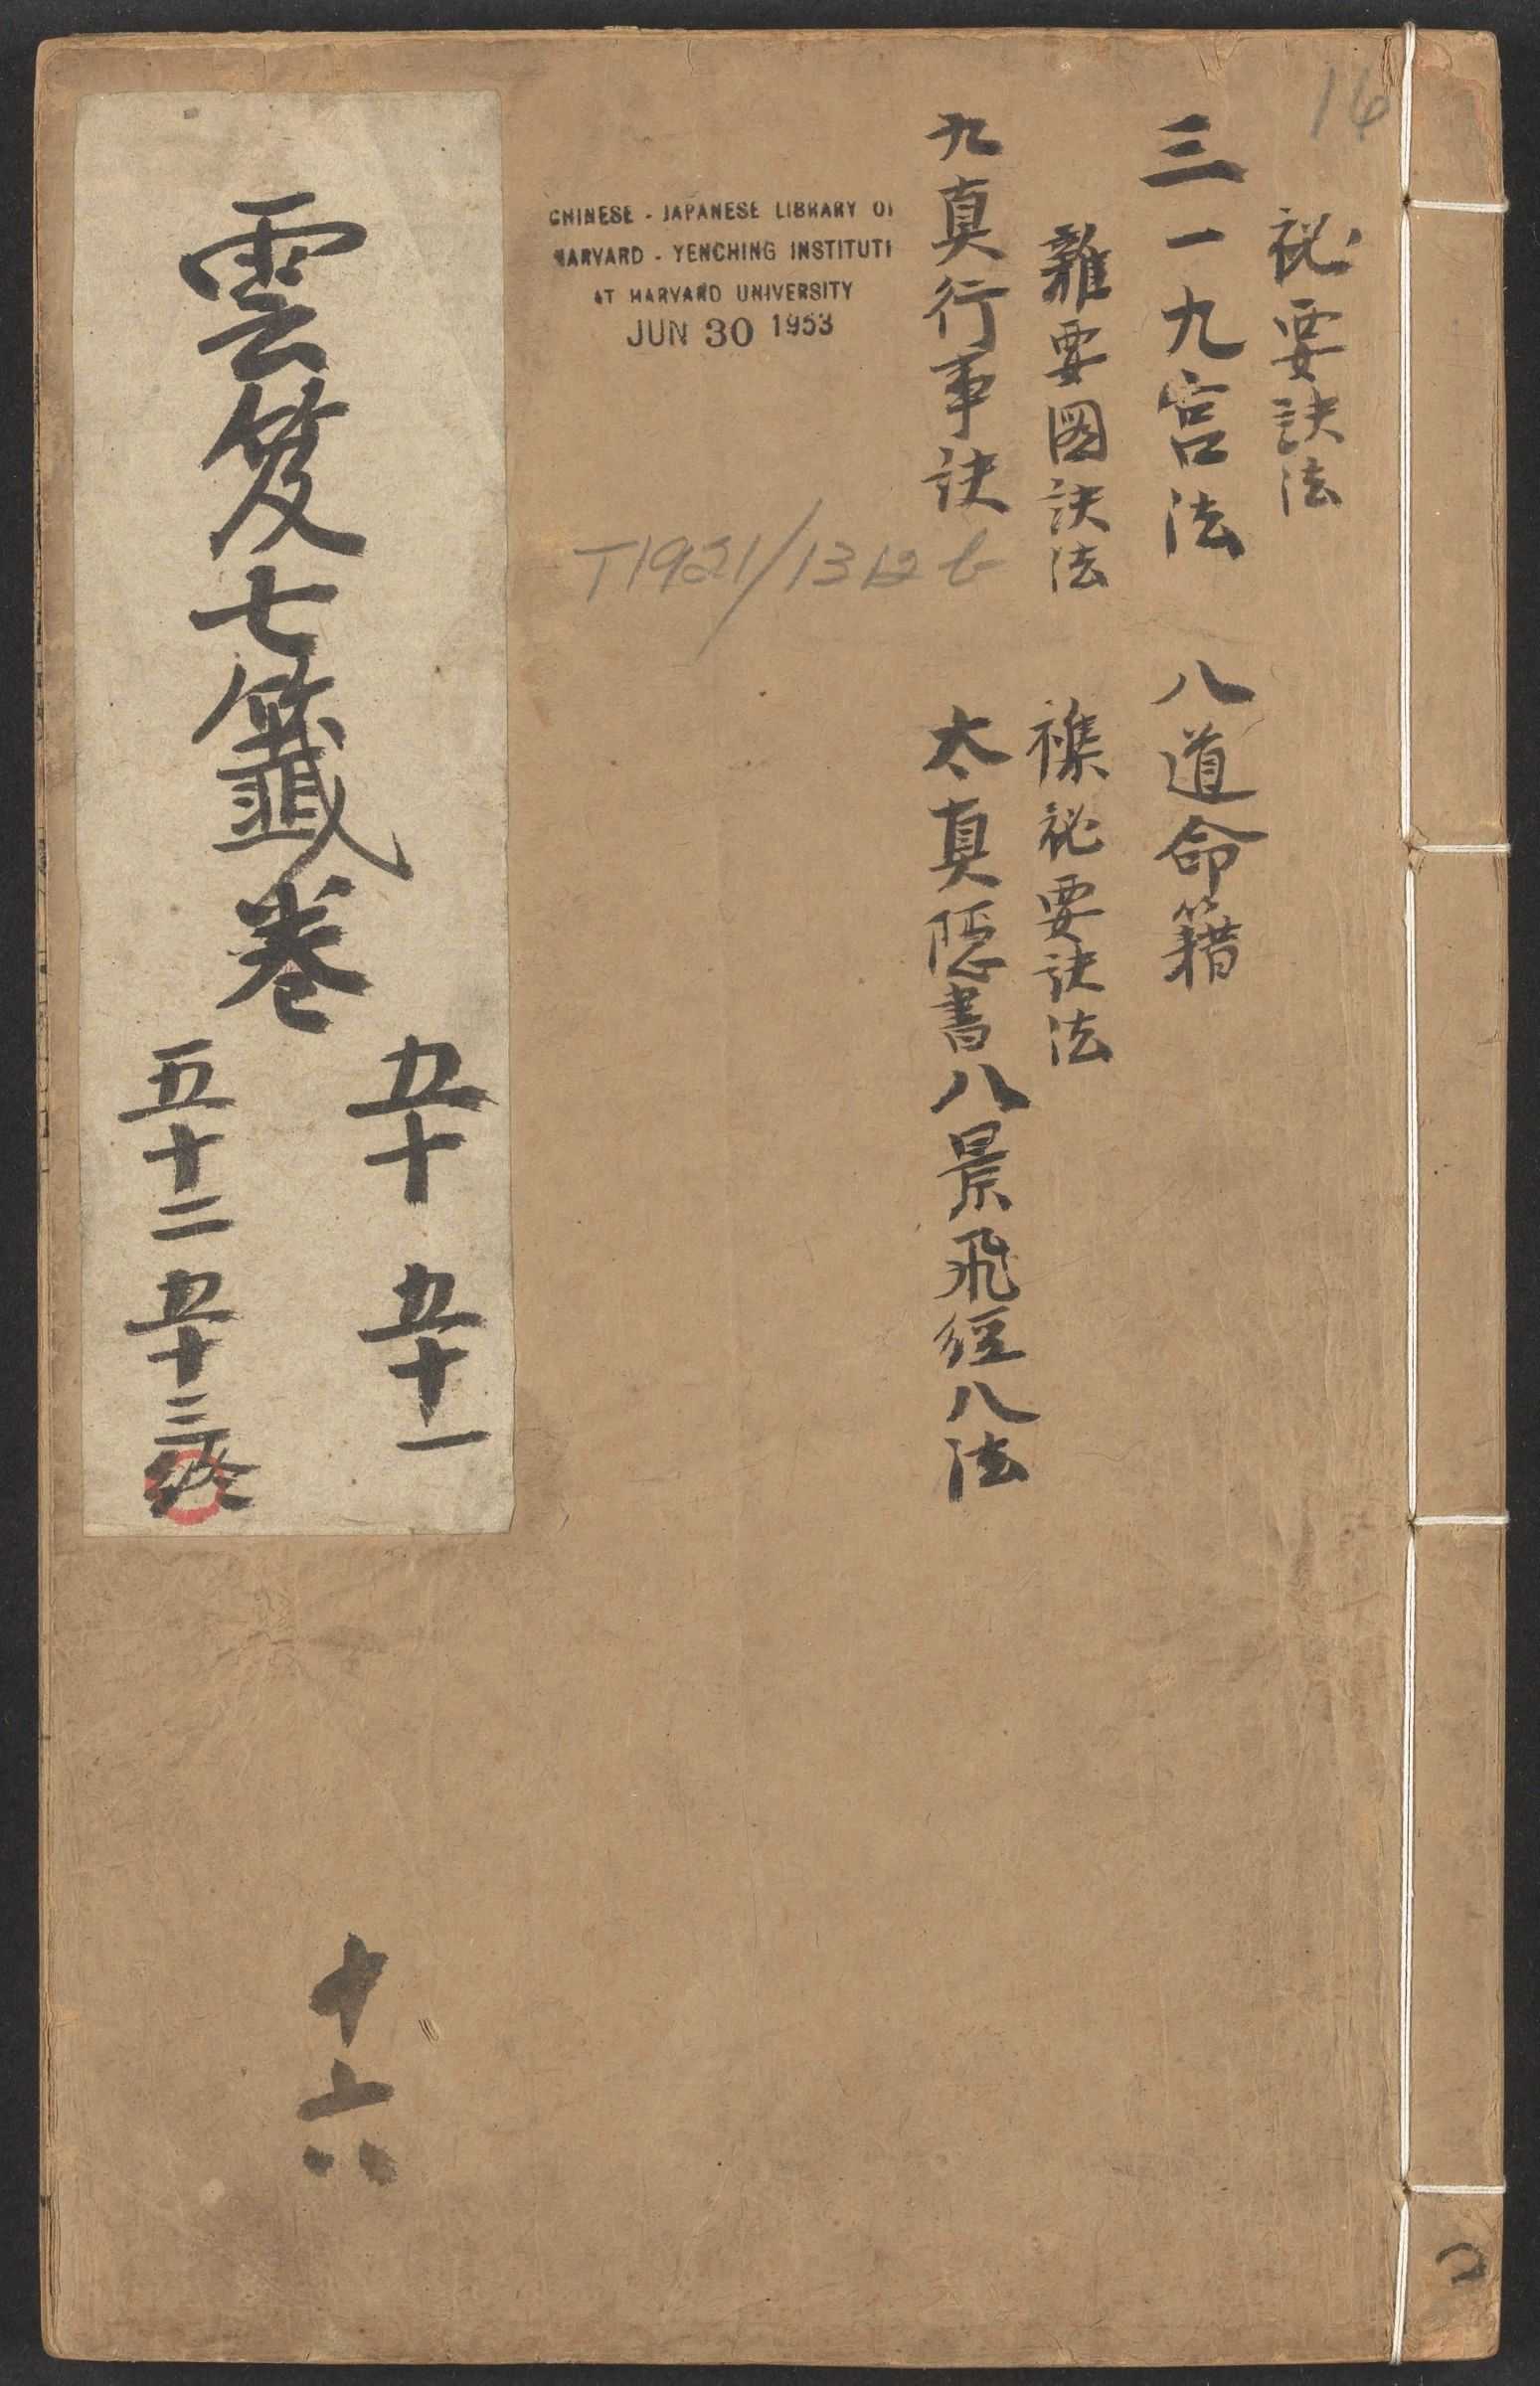 16
祕要訣法
三一九宮法 八道命籍
雜要圖訣法 襍祕要訣法
九真行事訣 太真隱書八景飛經八法
CHINESE - JAPANESE LIBRARY OF
HARVARD - YENCHING INSTITUTE
AT HARVARD UNIVERSITY
JUN 30 1953
T1921/1312 b
雲笈七籤卷
五十 五十一
五十二 五十三終
十六